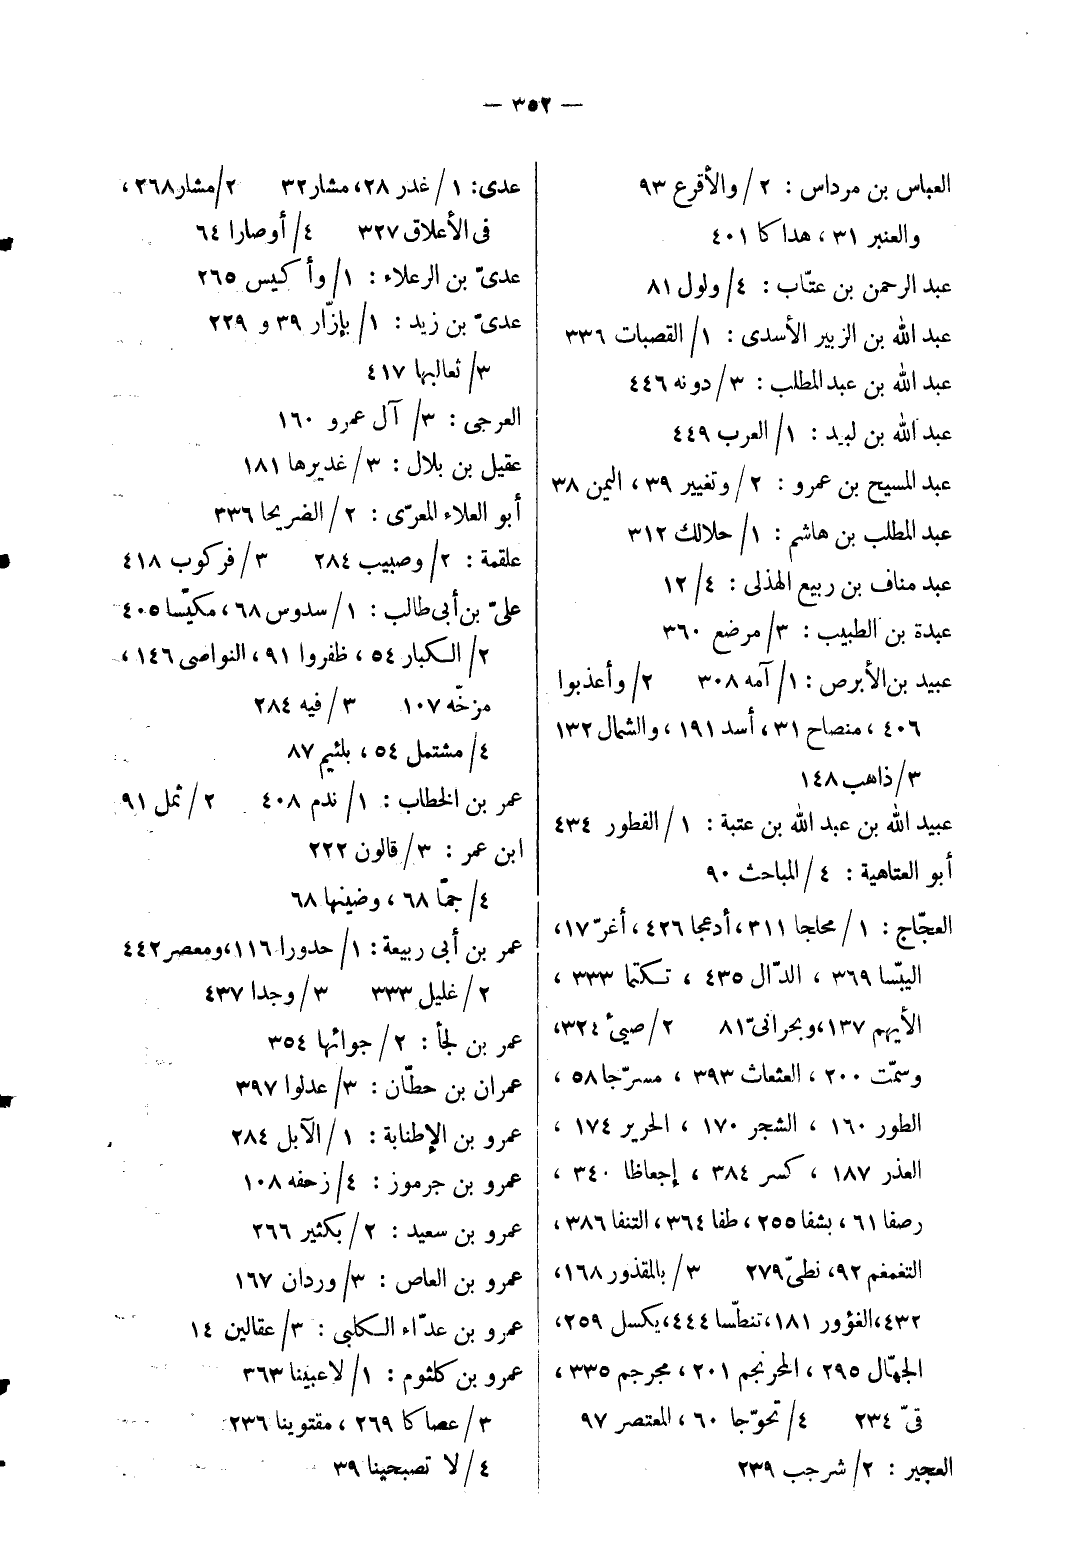 — ٣٥٢ —
العباس بن مرداس : ٢/ والأقرع ٩٣
والعنبر ٣١ ، هداكا ٤٠١
عبد الرحمن بن عتّاب : ٤/ ولول ٨١
عبد الله بن الزبير الأسدى : ١/ القصبات ٣٣٦
عبد الله بن عبد المطلب : ٣/ دونه ٤٤٦
عبد الله بن لبيد : ١/ العرب ٤٤٩
عبد المسيح بن عمرو : ٢/ وتغيير ٣٩ ، اليمن ٣٨
عبد المطلب بن هاشم : ١/ حلالك ٣١٢
عبد مناف بن ربيع الهذلى : ٤/ ١٢
عبدة بن الطبيب : ٣/ مرضع ٣٦٠
عبيد بن الأبرص : ١/ آمه ٣٠٨ ٢/ وأعذبوا
٤٠٦ ، منصاح ٣١ ، أسد ١٩١ ، والشمال ١٣٢
٣/ ذاهب ١٤٨
عبيد الله بن عبد الله بن عتبة : ١/ الفطور ٤٣٤
أبو العتاهية : ٤/ المباحث ٩٠
العجّاج : ١/ محلجا ٣١١ ، أدعجا ٤٢٦ ، أغرّ ١٧ ،
اليبّسا ٣٦٩ ، الدّال ٤٣٥ ، تكتما ٣٣٣ ،
الأيهم ١٣٧ ، وبحرانىّ ٨١ ٢/ صبىّ ٣٢٤ ،
وسمّت ٢٠٠ ، العثعاث ٣٩٣ ، مسرّجا ٥٨ ،
الطور ١٦٠ ، الشجر ١٧٠ ، الحرير ١٧٤ ،
العذر ١٨٧ ، كسر ٣٨٤ ، إجعاظا ٣٤٠ ،
رصفا ٦١ ، بشفا ٢٥٥ ، طفا ٣٦٤ ، التنفا ٣٨٦ ،
التغمغم ٩٢ ، نطىّ ٢٧٩ ٣/ بالمقذور ١٦٨ ،
٤٣٢ ، الغؤور ١٨١ ، تنطّسا ٤٤٤ ، يكسل ٢٥٩ ،
الجهّال ٢٩٥ ، المحرنجم ٢٠١ ، مجرجم ٣٣٥ ،
قىّ ٢٣٤ ٤/ تحوّجا ٦٠ ، المعتصر ٩٧
العجير : ٢/ شرجب ٢٣٩
عدى : ١/ غدر ٢٨ ، مشار ٣٢ ٢/ مشار ٢٦٨ ،
فى الأعلاق ٣٢٧ ٤/ أوصارا ٦٤
عدىّ بن الرعلاء : ١/ وأكيس ٢٦٥
عدىّ بن زيد : ١/ بإزّار ٣٩ و ٢٢٩
٣/ ثعالبها ٤١٧
العرجى : ٣/ آل عمرو ١٦٠
عقيل بن بلال : ٣/ غديرها ١٨١
أبو العلاء المعرّى : ٢/ الضريحا ٣٣٦
علقمة : ٢/ وصبيب ٢٨٤ ٣/ فركوب ٤١٨
علىّ بن أبى طالب : ١/ سدوس ٦٨ ، مكيّسا ٤٠٥
٢/ الكبار ٥٤ ، ظفروا ٩١ ، النواصى ١٤٦ ،
مزخّه ١٠٧ ٣/ فيه ٢٨٤
٤/ مشتمل ٥٤ ، بلئيم ٨٧
عمر بن الخطاب : ١/ ندم ٤٠٨ ٢/ ثمل ٩١
ابن عمر : ٣/ قالون ٢٢٢
٤/ جمّا ٦٨ ، وضينها ٦٨
عمر بن أبى ربيعة : ١/ حدورا ١١٦ ، ومعصر ٤٤٢
٢/ غليل ٣٣٣ ٣/ وجدا ٤٣٧
عمر بن لجأ : ٢/ جوائها ٣٥٤
عمران بن حطّان : ٣/ عدلوا ٣٩٧
عمرو بن الإطنابة : ١/ الآبل ٢٨٤
عمرو بن جرموز : ٤/ زحفه ١٠٨
عمرو بن سعيد : ٢/ بكثير ٢٦٦
عمرو بن العاص : ٣/ وردان ١٦٧
عمرو بن عدّاء الكلبى : ٣/ عقالين ١٤
عمرو بن كلثوم : ١/ لاعبينا ٣٦٣
٣/ عصاكا ٢٦٩ ، مقتوينا ٢٣٦
٤/ لا تصبحينا ٣٩